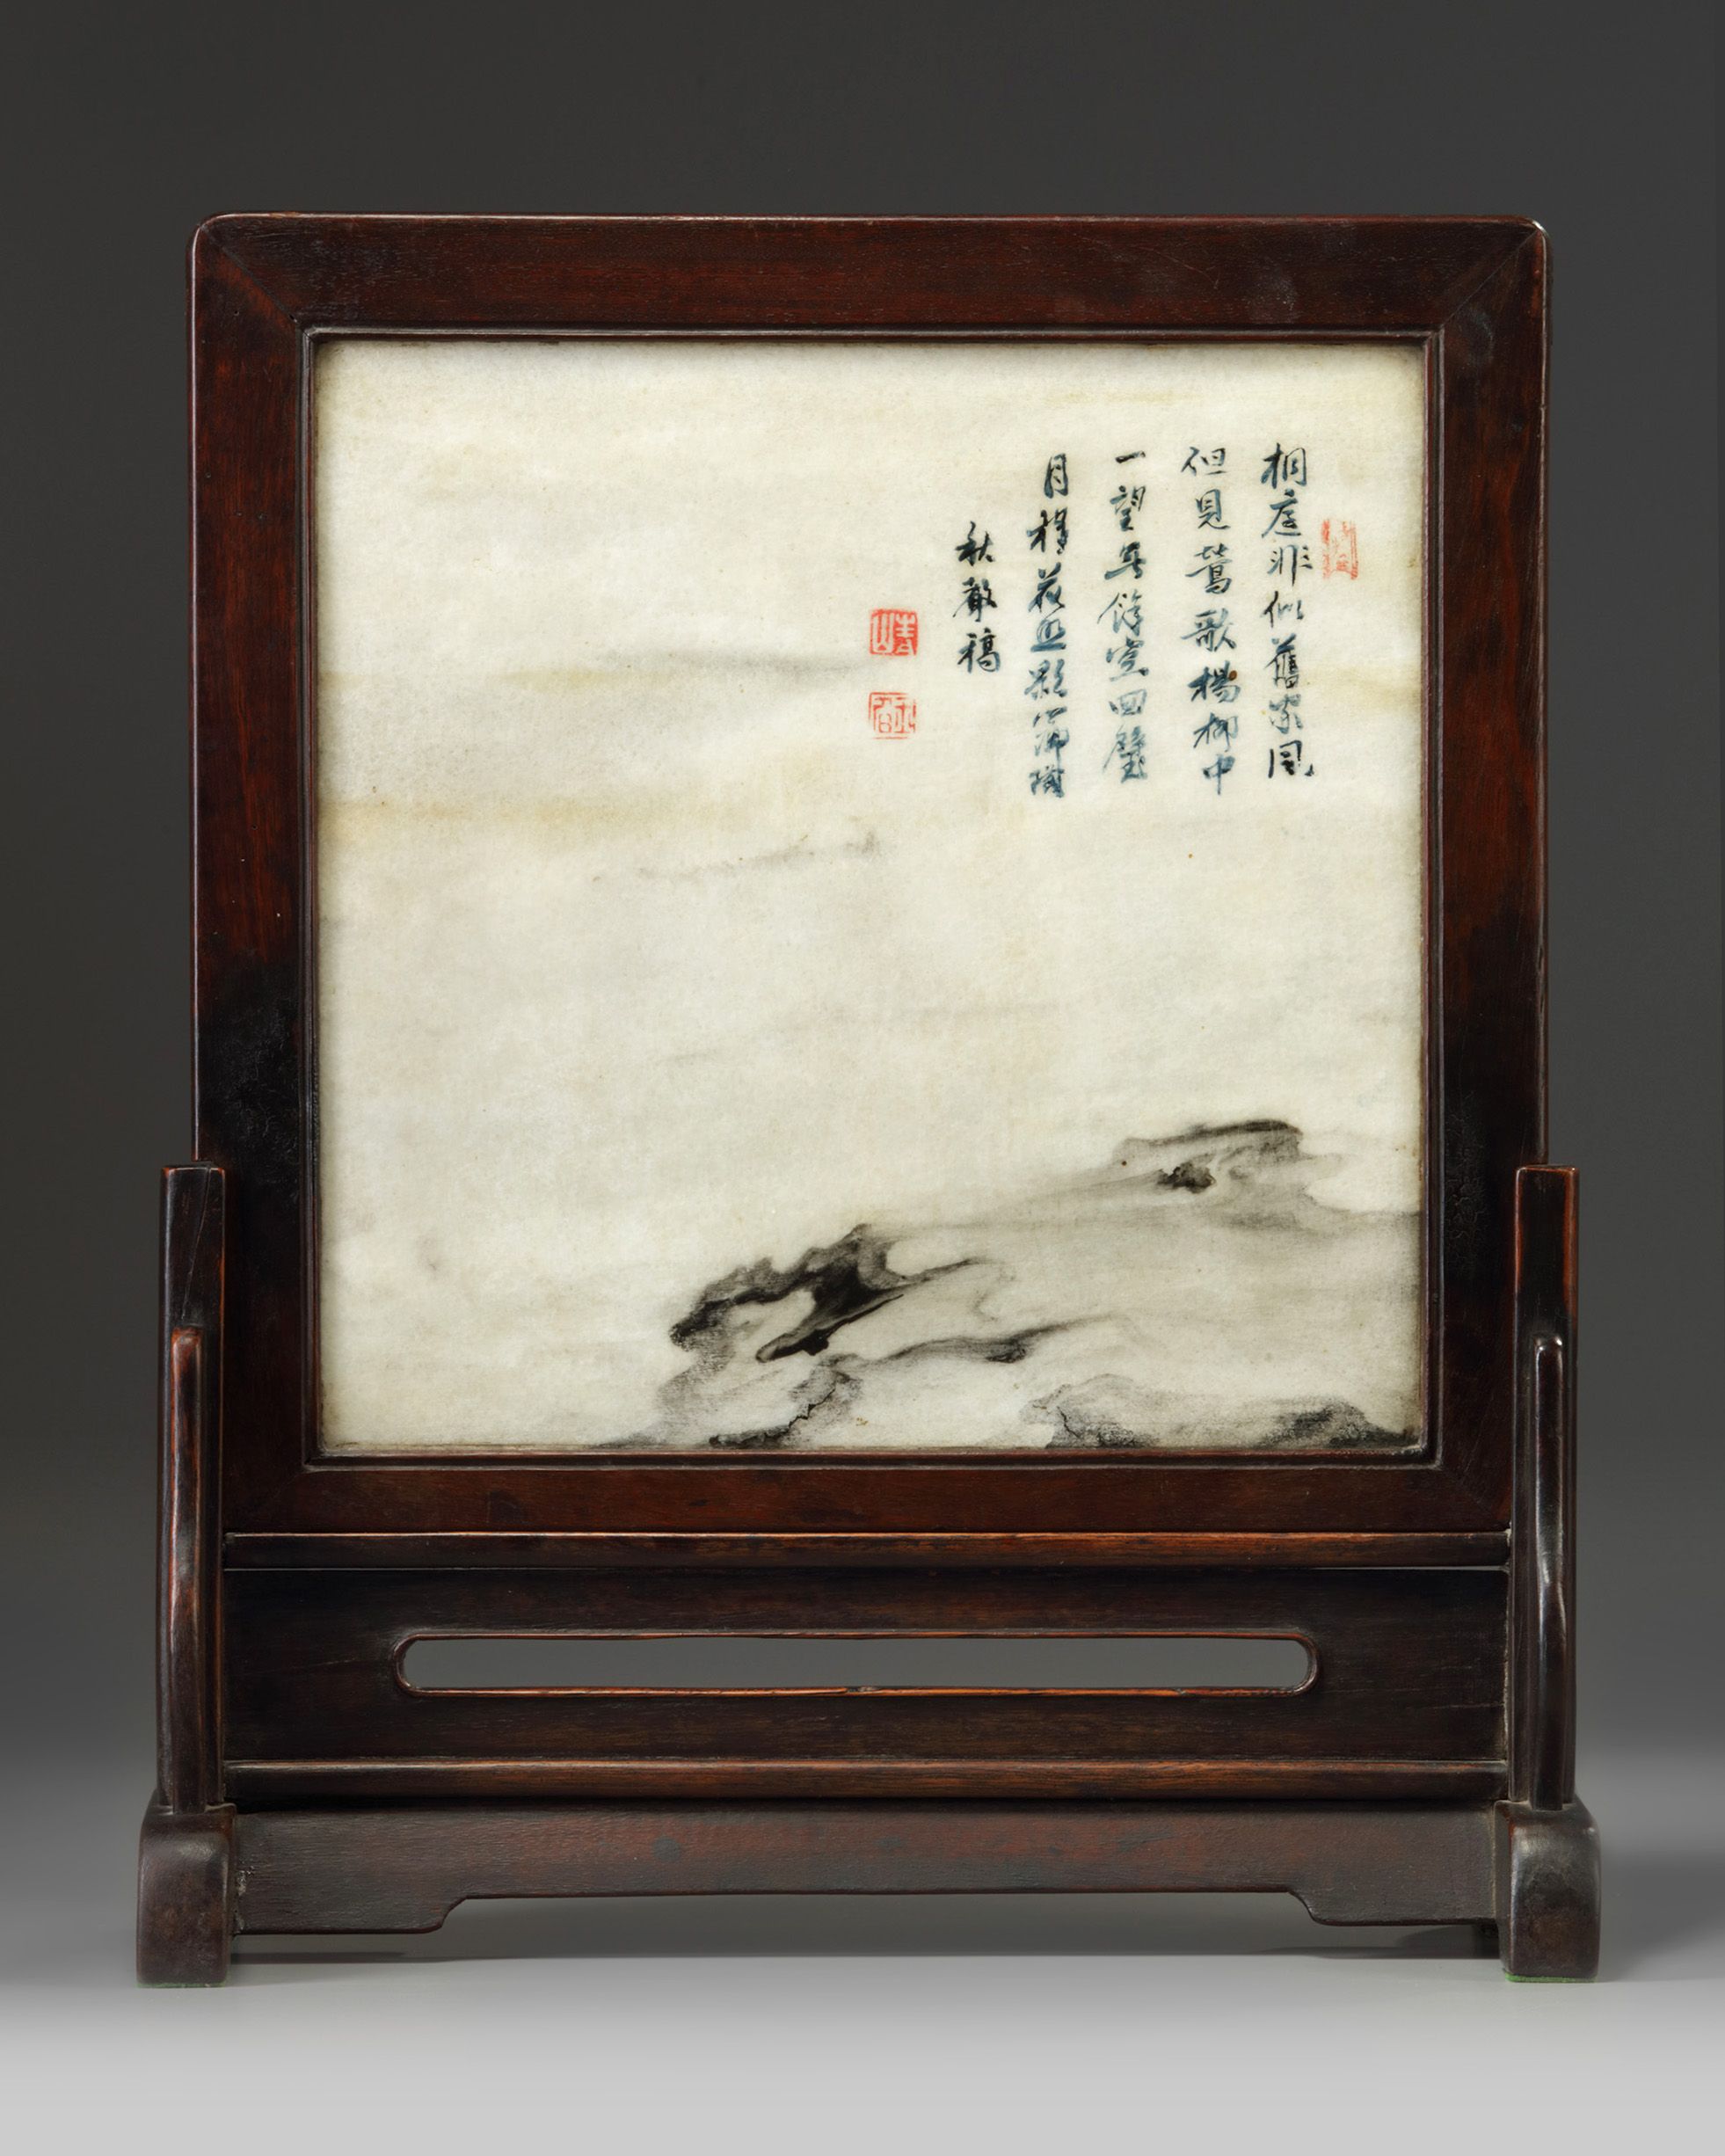 桐庭非似舊家風
但見鶯歌楊柳中
一望無餘空四壁
月移花照影簾櫳
秋
稿